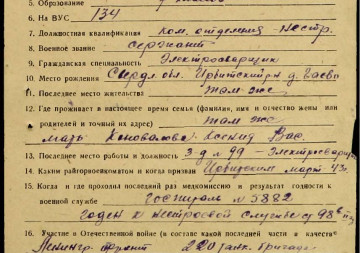 5. Образование
6. На ВУС 134
7. Должностная квалификация ком. отделения
8. Военное звание сержант
9. Гражданская специальность Электросварщик
10. Место рождения Сверд. обл. Ирбитский р-н д. Гаева
11. Последнее место жительства там же
12. Где проживает в настоящее время семья (фамилия, имя и отчество жены или
родителей и точный их адрес) там же
мать Коновалова Вас.
13. Последнее место работы и должность 3-д № 99 - Электросварщик
14. Каким райгорвоенкоматом и когда призван Ирбитским март 43
15. Когда и где проходил последний раз медкомиссию и результат годности к
военной службе Госпиталь № 3882
годен к нестроевой службе
16. Участие в Отечественной войне (в составе какой последней части и качестве)
Ленингр. фронт 220 танк. бригада